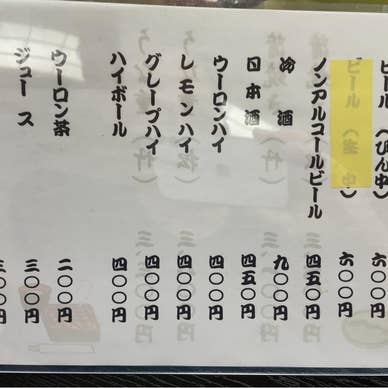 ビール（びん中） 六〇〇円
ビール（生中） 六〇〇円
ノンアルコールビール 四五〇円
冷酒 九〇〇円
日本酒 四五〇円
ウーロンハイ 四〇〇円
レモンハイ 四〇〇円
グレープハイ 四〇〇円
ハイボール 四〇〇円
ウーロン茶 二〇〇円
ジュース 三〇〇円
三〇〇円